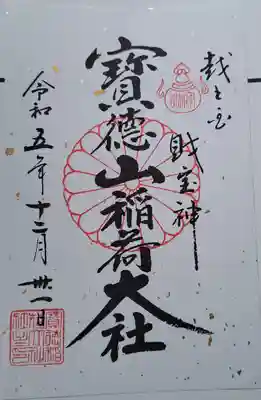 越之国
財宝神
寳徳山稲荷大社
令和五年十二月卅一日